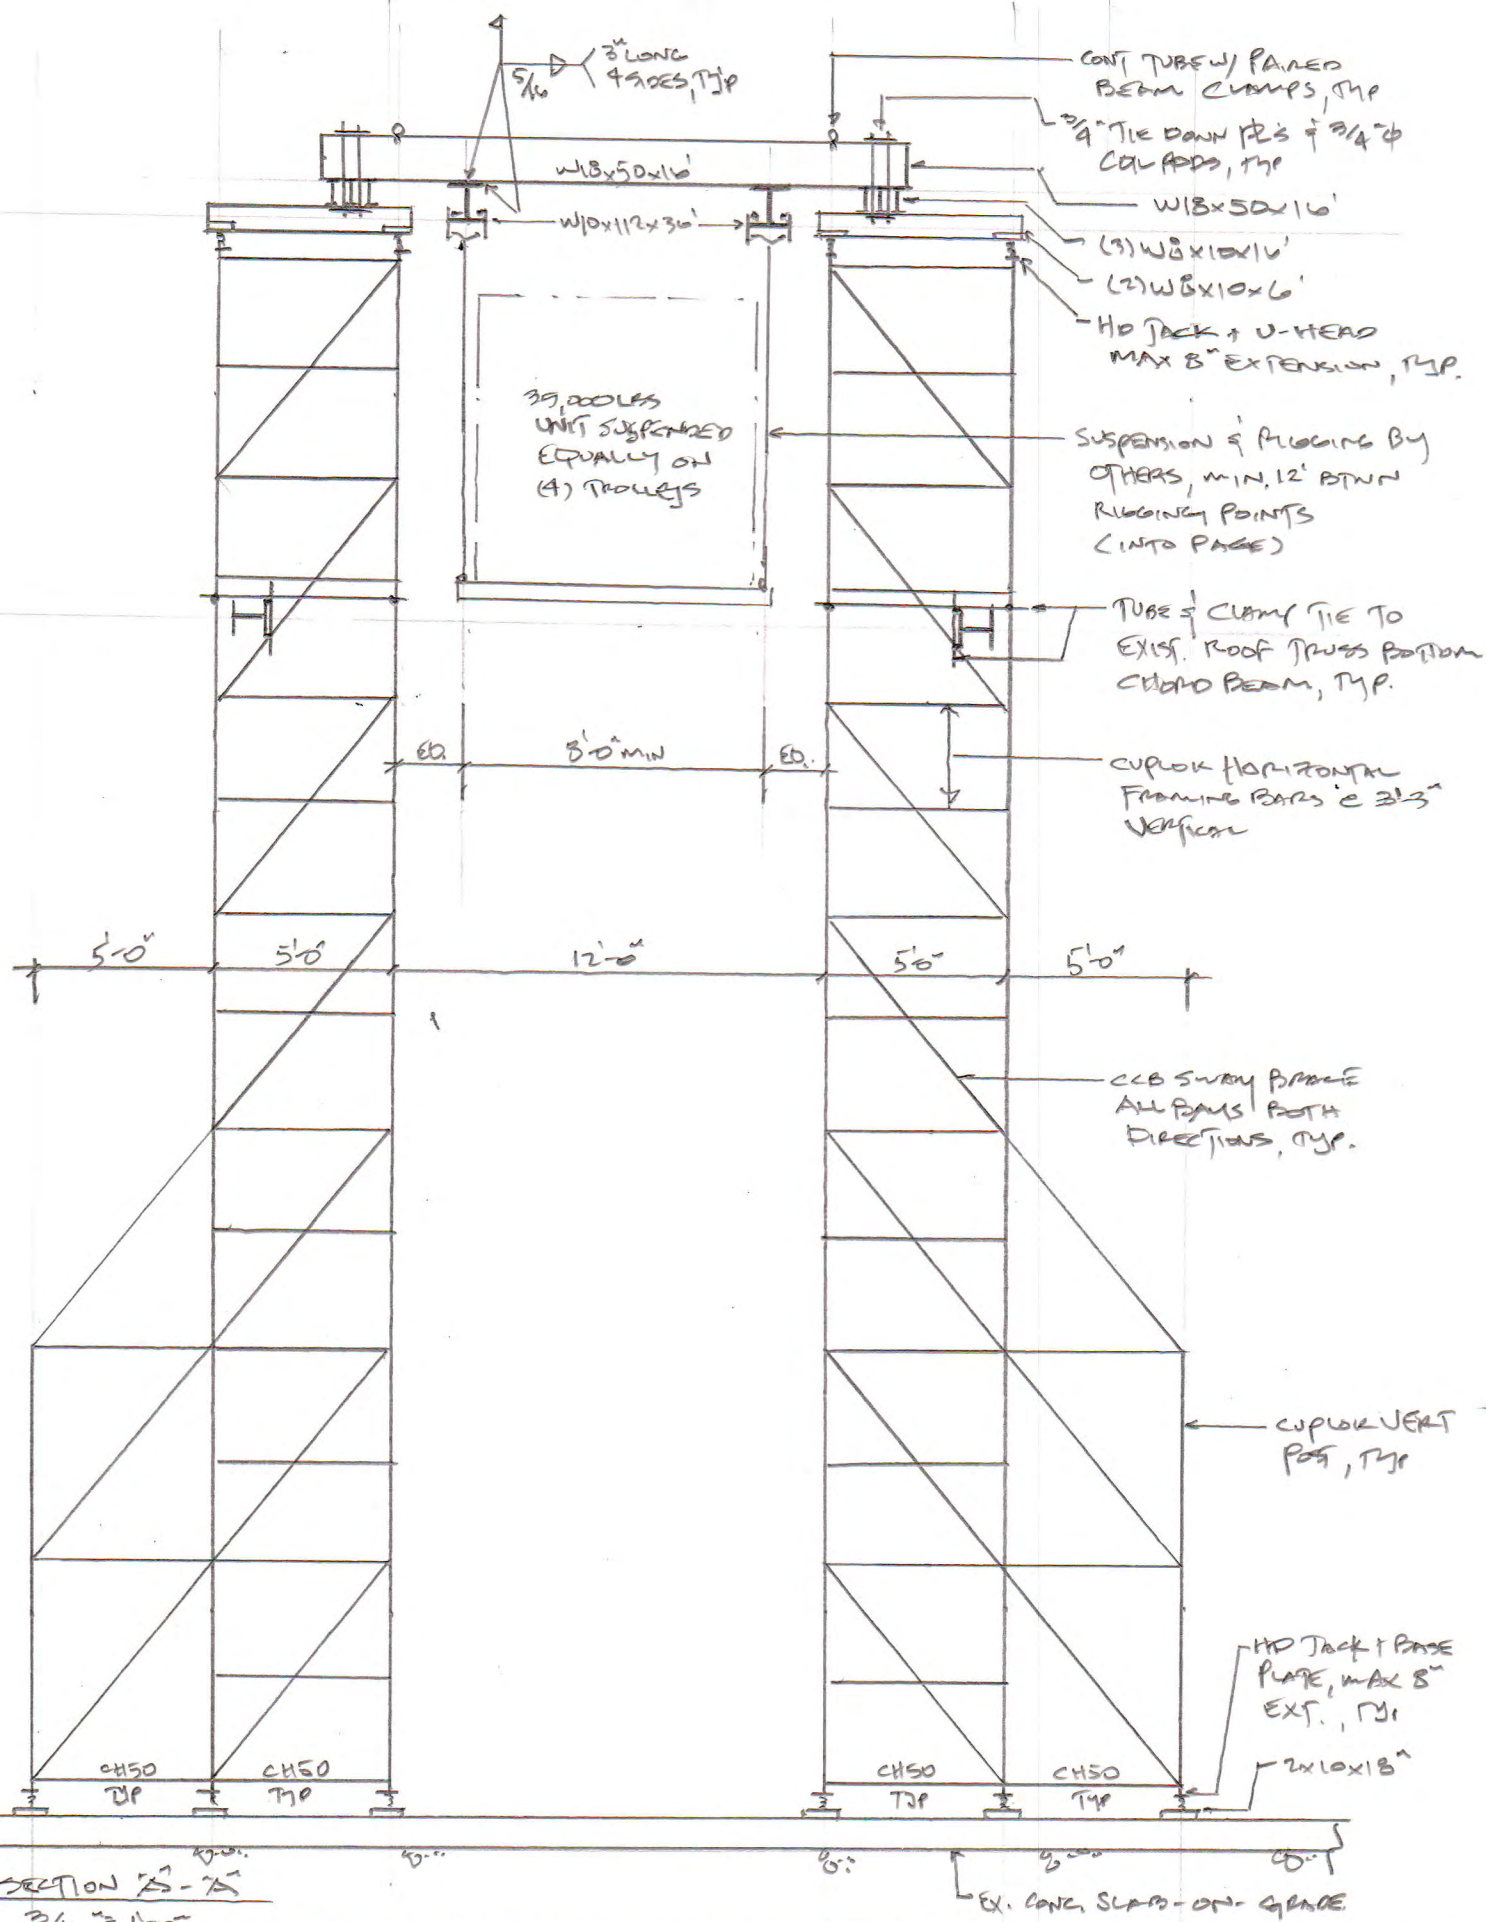 5/16
3" LONG
4 SIDES, TYP
CONT TUBE W/ PAIRED
BEAM CLAMPS, TYP
3/4" TIE DOWN PL'S & 3/4" φ
COIL RODS, TYP
W18x50x16'
W18x50x16'
W10x112x36'
(3) W8x10x16'
(2) W8x10x6'
HD JACK + U-HEAD
MAX 8" EXTENSION, TYP.
39,000 LBS
UNIT SUSPENDED
EQUALLY ON
(4) TROLLEYS
SUSPENSION & RIGGING BY
OTHERS, MIN. 12' BTWN
RIGGING POINTS
(INTO PAGE)
TUBE & CLAMP TIE TO
EXIST. ROOF TRUSS BOTTOM
CHORD BEAM, TYP.
EQ. 8'-0" MIN EQ.
CUPLOK HORIZONTAL
FRAMING BARS @ 3'-3"
VERTICAL
5'-0" 5'-0" 12'-0" 5'-0" 5'-0"
CCB SWAY BRACE
ALL BAYS BOTH
DIRECTIONS, TYP.
CUPLOK VERT
POST, TYP
HD JACK + BASE
PLATE, MAX 8"
EXT., TYP
2x10x18"
CH50 CH50 CH50 CH50
TYP TYP TYP TYP
EX. CONC. SLAB-ON-GRADE
SECTION "A"-"A"